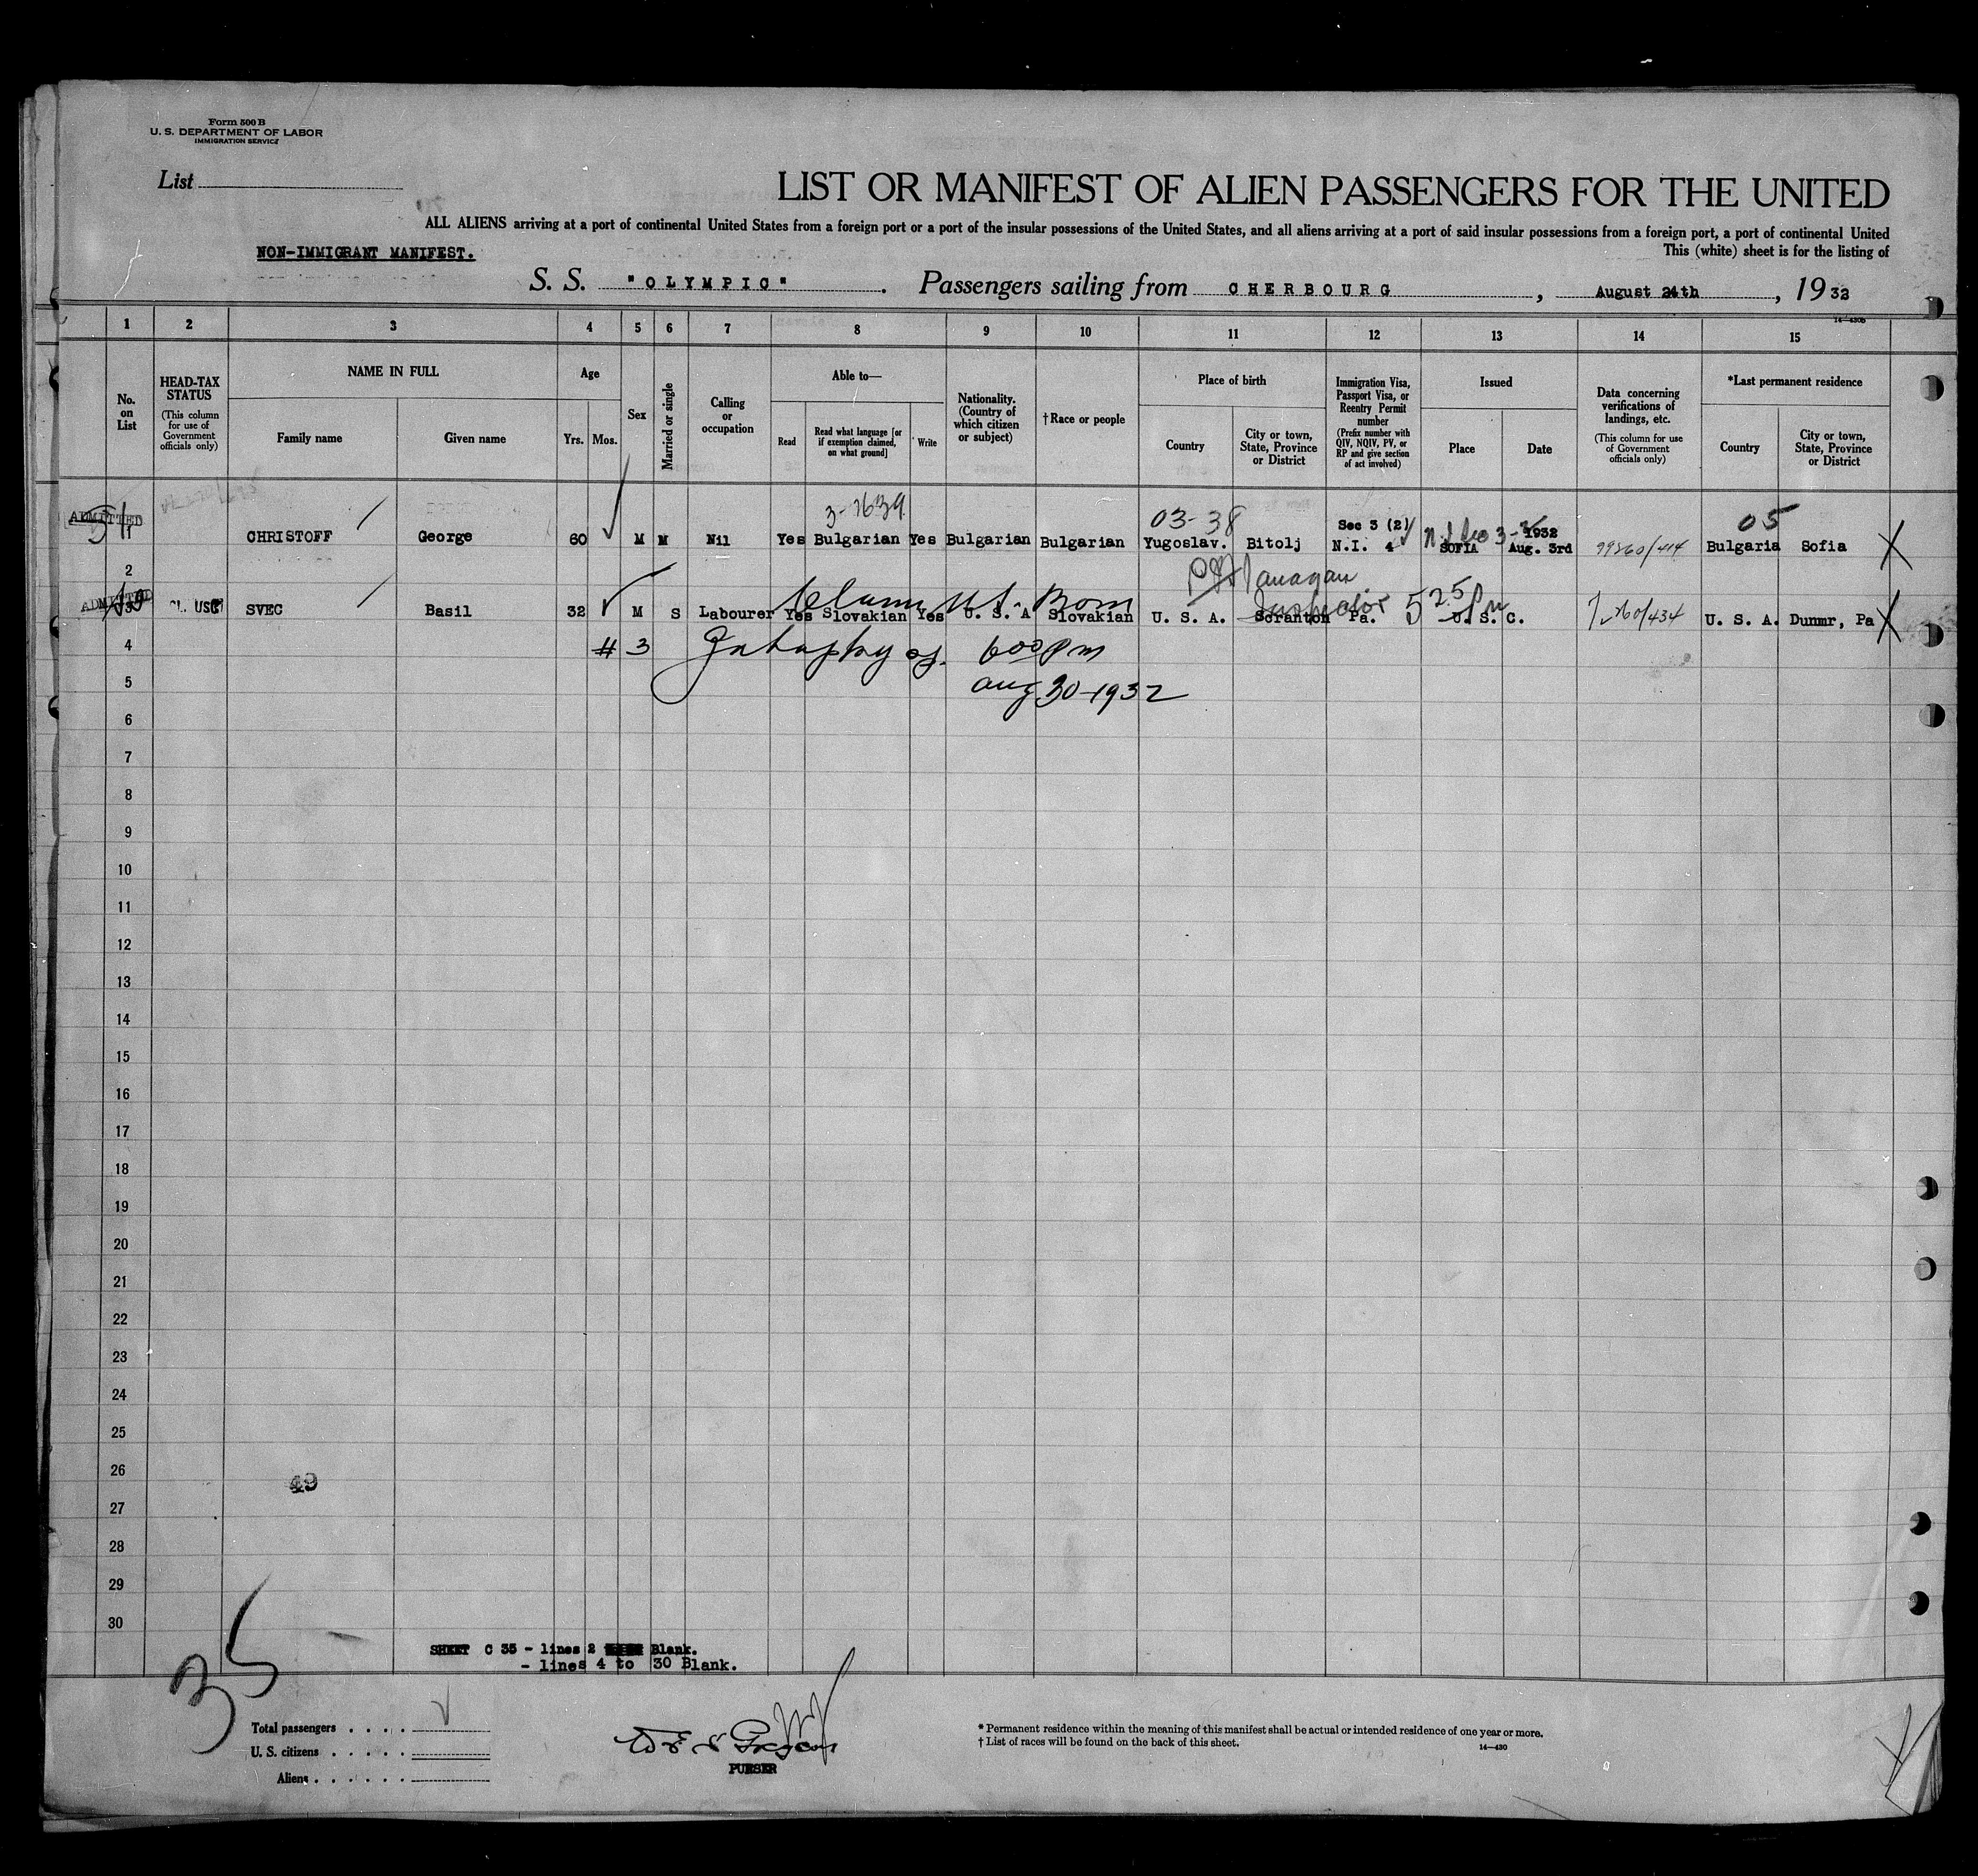 Form 500 B
U. S. DEPARTMENT OF LABOR
IMMIGRATION SERVICE
List
LIST OR MANIFEST OF ALIEN PASSENGERS FOR THE UNITED
ALL ALIENS arriving at a port of continental United States from a foreign port or a port of the insular possessions of the United States, and all aliens arriving at a port of said insular possessions from a foreign port, a port of continental United
NON-IMMIGRANT MANIFEST.
This (white) sheet is for the listing of
S. S. "OLYMPIC". Passengers sailing from CHERBOURG, August 24th, 1932
14—430b
1 2 3 4 5 6 7 8 9 10 11 12 13 14 15
No. on List
HEAD-TAX STATUS
(This column for use of Government officials only)
NAME IN FULL
Family name
Given name
Age
Yrs. Mos.
Sex
Married or single
Calling or occupation
Able to—
Read
Read what language [or if exemption claimed, on what ground]
Write
Nationality. (Country of which citizen or subject)
† Race or people
Place of birth
Country
City or town, State, Province or District
Immigration Visa, Passport Visa, or Reentry Permit number
(Prefix number with QIV, NQIV, PV, or RP and give section of act involved)
Issued
Place
Date
Data concerning verifications of landings, etc.
(This column for use of Government officials only)
*Last permanent residence
Country
City or town, State, Province or District
3-7639 03-38 Sec 3 (2) 1932 05
ADMITTED
1 CHRISTOFF George 60 M M Nil Yes Bulgarian Yes Bulgarian Bulgarian Yugoslav. Bitolj N.I. 4 SOFIA Aug. 3rd 99860/414 Bulgaria Sofia X
2
Flanagan
ADMITTED
U.S. Born Inspector 525 Pm
3 USC SVEC Basil 32 M S Labourer Yes Slovakian Yes U. S. A Slovakian U. S. A. Scranton Pa. U. S. C. U. S. A. Dunmr, Pa X
4 # 3 600 Pm
5 Aug 30-1932
6
7
8
9
10
11
12
13
14
15
16
17
18
19
20
21
22
23
24
25
26
49
27
28
29
30
SHEET C 35 - lines 2 Blank.
- lines 4 to 30 Blank.
35
Total passengers
U. S. citizens
Aliens
PURSER
* Permanent residence within the meaning of this manifest shall be actual or intended residence of one year or more.
† List of races will be found on the back of this sheet.
14—430